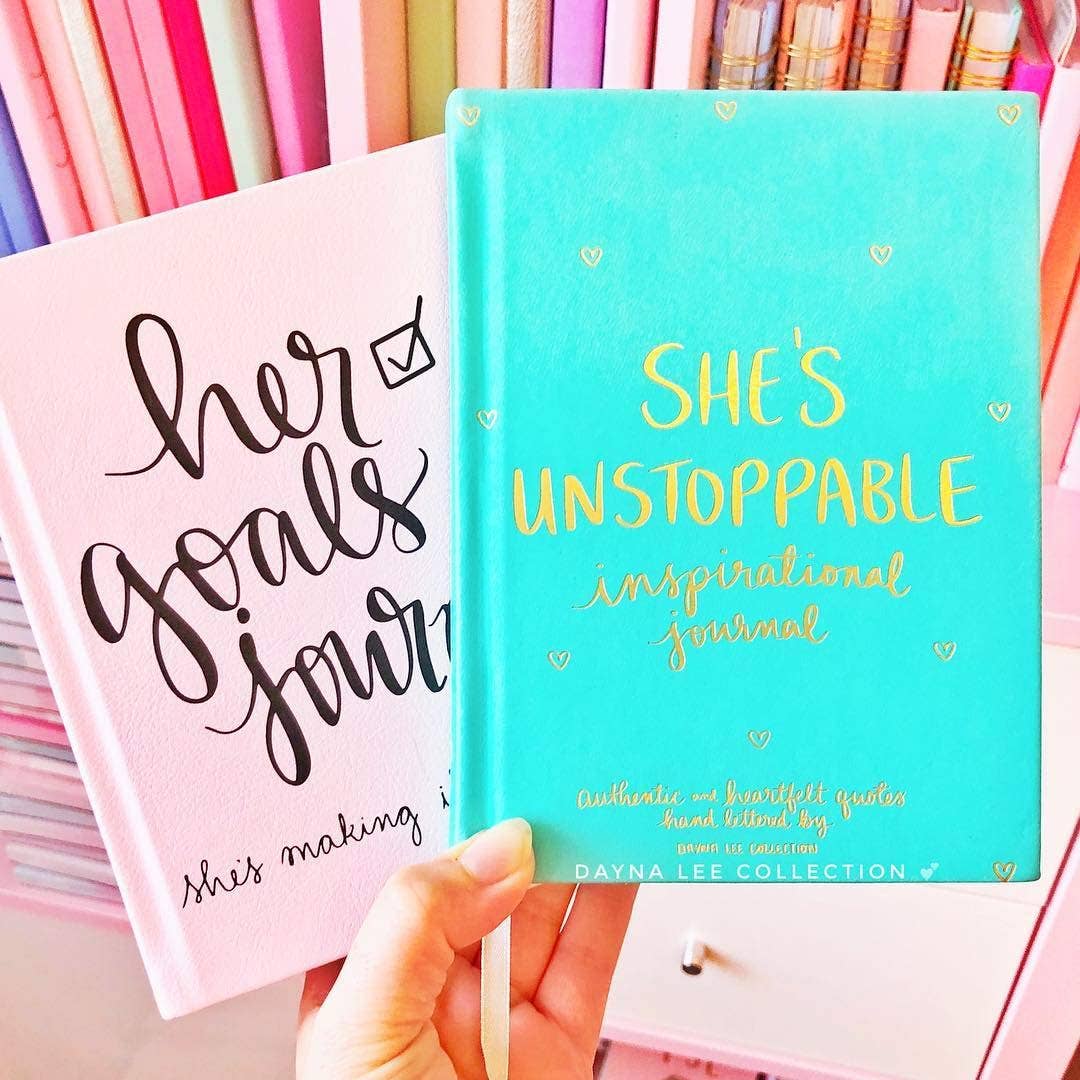 her
goals
jour
she's making i
SHE'S
UNSTOPPABLE
inspirational
journal
authentic and heartfelt quotes
hand lettered by
DAYNA LEE COLLECTION
DAYNA LEE COLLECTION